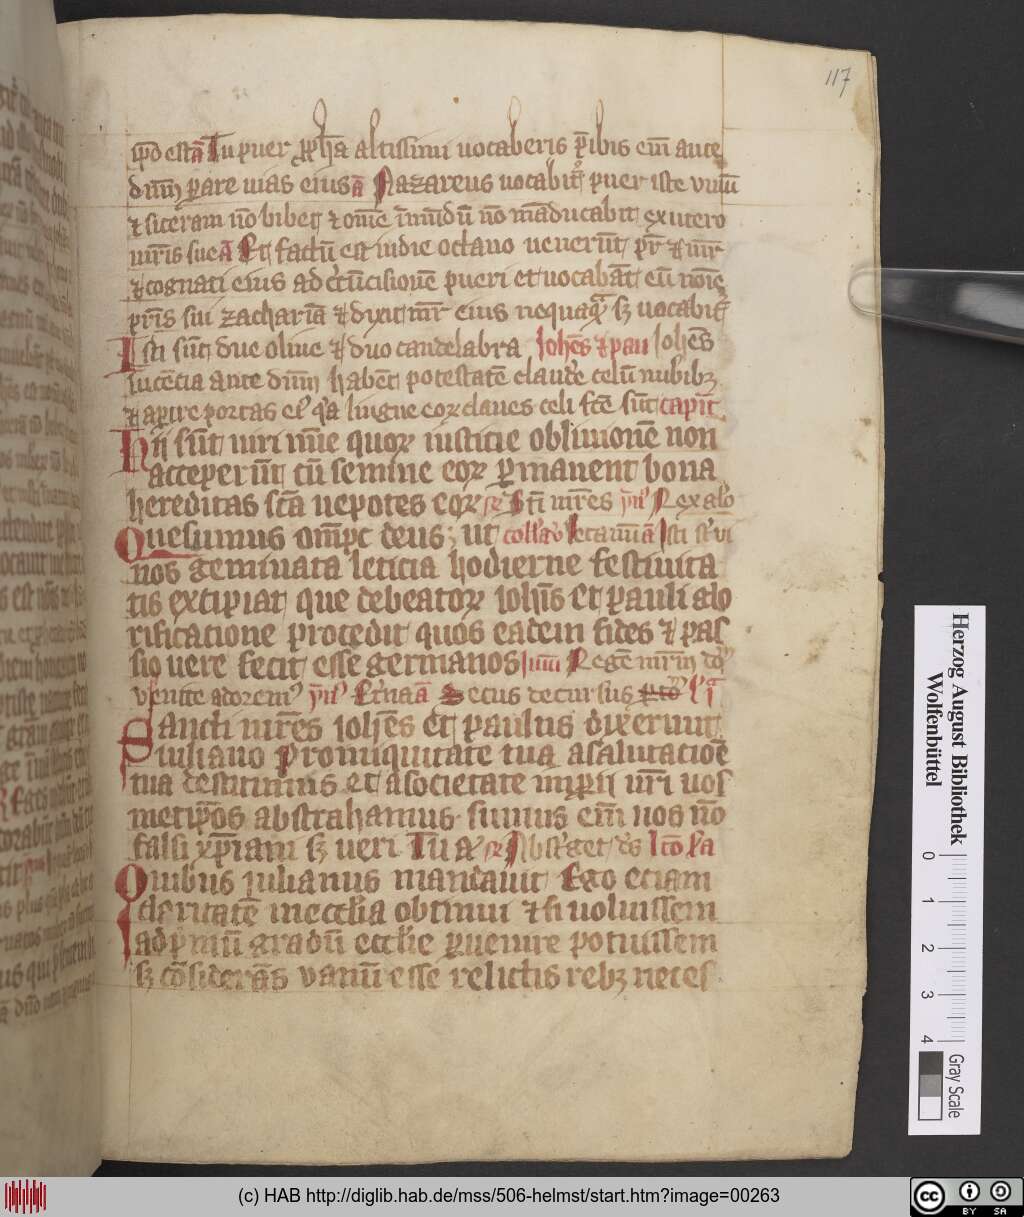 117
sp̄d est a᷈ Tu puer ꝓph̄a altissimi uocaberis p̄ibis em̄ ante
dn̄m parare uias eius a᷈ Nazareus uocabit᷑ puer iste vinū
⁊ siceram nō bibet ⁊ om̄e īmūdū nō māducabit ex utero
mr̄is sue A᷈ Et factū est in die octauo uenerūt pr̄ ⁊ mr̄
⁊ cognati eius ad circūcisionē pueri et uocabāt eū noīe
pr̄is sui zachariā ⁊ dixit mr̄ eius nequaq̄ sꝫ uocabit᷑
Isti sūt due oliue ⁊ duo candelabra Johēs ⁊ pau Johēs
lucētia ante dn̄m habēt potestatē claudere celū nubibꝫ
⁊ aperire portas ei᷒ q̇a lingue eoꝝ claues celi fc̄e sūt capit̄
Hij sūt uiri mīe quoꝝ iusticie obliuionē non
acceperūt cū semine eoꝝ ꝑmanent bona
hereditas sc̄a nepotes eoꝝ
Quesumus om̄pc deus ut
nos geminata leticia hodierne festiuita
tis excipiat que de beatoꝝ ioh̄is et pauli glo
rificatione procedit quos eadem fides ⁊ pas
sio uere fecit esse germanos
uenite adorem᷒ Secus decursus
Sancti mr̄es ioh̄es et paulus dixerunt
iuliano Pro iniquitate tua a salutatiōe
tua destitim᷒ et a societate imperii ur̄i uos
metip̄os abstrahamus sumus em̄ nos nō
falsi xp̄iani sꝫ ueri Tu
Quibus iulianus mandauit Ego etiam
clericatē in ecclīa obtinui ⁊ si uoluissem
ad p̄mū gradū ecclīe ꝑuenire potuissem
sꝫ cōsiderans vanū esse relictis rebꝫ neces
Herzog August Bibliothek
Wolfenbüttel
0 1 2 3 4
Gray Scale
(c) HAB http://diglib.hab.de/mss/506-helmst/start.htm?image=00263
cc BY SA